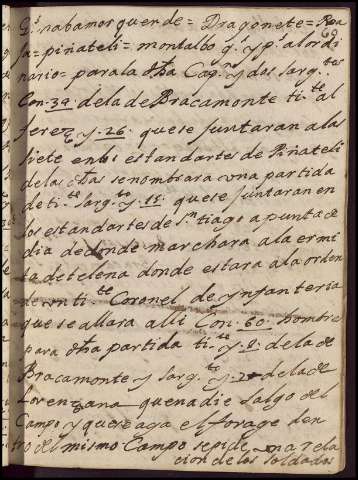 Gs natamorquende = Dragonete = Rosa
69
fa = piñateli = montalbo g. y ps. al ordi
nario = para la dha Capn. y dos sargtes
Con. 39. de la de Bracamonte tite al
ferez y. 26. que se juntaran a las
siete en los estandartes de Piñateli
de las dhas se nombrara una partida
de tite sargte y 15. que se juntaran en
los estandartes de Sntiago a punta de
dia de donde marchara a la ermi
ta de telena donde estara a la orden
de un tite Coronel de Ynfanteria
que se allara alli Con. 60. hombre
para dha partida tite y. 9. de la de
Bracamonte y sargte y. 2 de la de
Lorenzana que nadie salgo del
Campo y que se aga el forage den
tro del mismo Campo se pide una rela
cion de los soldados